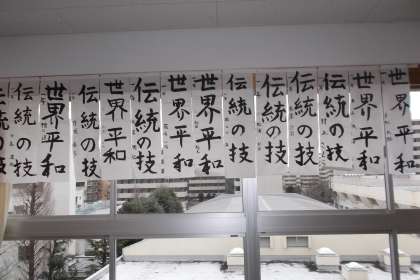 伝統の技
伝統の技
世界平和
伝統の技
世界平和
伝統の技
世界平和
世界平和
伝統の技
伝統の技
伝統の技
伝統の技
世界平和
世界平和